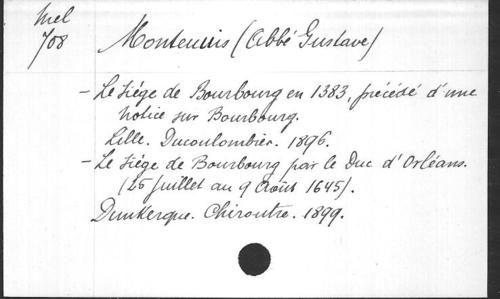 Mel
708
Monteuuis (Abbé Gustave)
- Le Siége de Bourbourg en 1383, précédé d'une
notice sur Bourbourg.
Lille. Ducoulombier. 1896.
- Le Siége de Bourbourg par le Duc d'Orléans.
(25 Juillet au 9 Août 1645).
Dunkerque. Chiroutre. 1899.